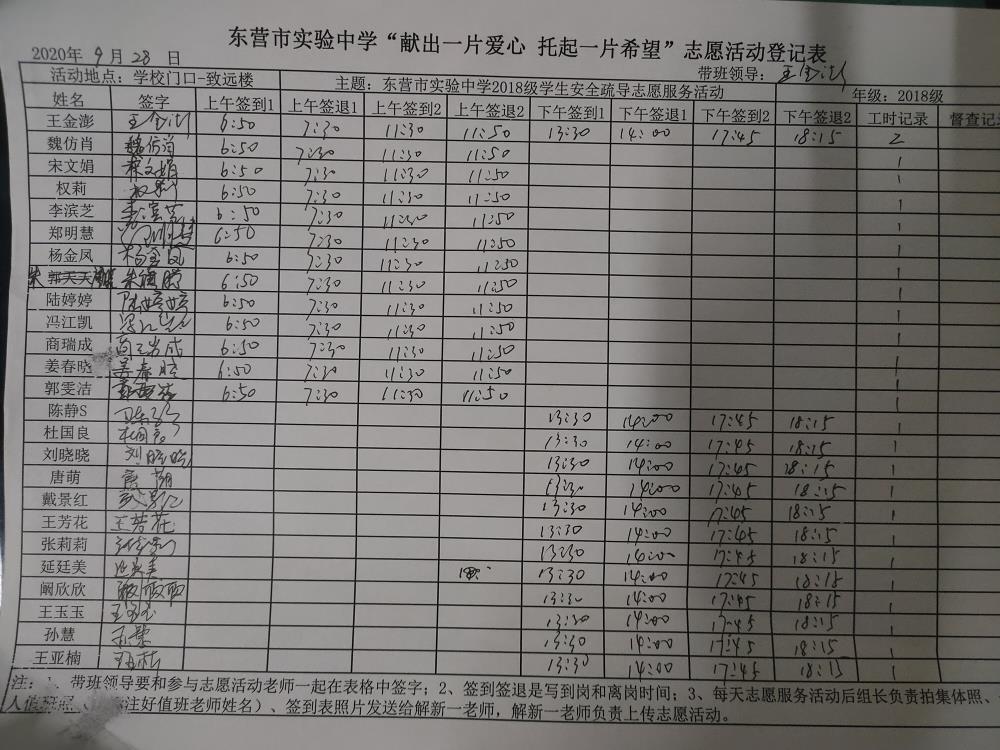 东营市实验中学“献出一片爱心 托起一片希望”志愿活动登记表
2020年 9 月 28 日 带班领导: 王金澎
活动地点: 学校门口-致远楼 主题: 东营市实验中学2018级学生安全疏导志愿服务活动 年级: 2018级
姓名 签字 上午签到1 上午签退1 上午签到2 上午签退2 下午签到1 下午签退1 下午签到2 下午签退2 工时记录 督查记
王金澎 王金澎 6:50 7:30 11:30 11:50 13:30 14:00 17:45 18:15 2
魏仿肖 魏仿肖 6:50 7:30 11:30 11:50 1
宋文娟 宋文娟 6:50 7:30 11:30 11:50 1
权莉 权莉 6:50 7:30 11:30 11:50 1
李滨芝 李滨芝 6:50 7:30 11:30 11:50 1
郑明慧 6:50 7:30 11:30 11:50 1
杨金凤 杨金凤 6:50 7:30 11:30 11:50 1
朱 郭天天 6:50 7:30 11:30 11:50 1
陆婷婷 陆婷婷 6:50 7:30 11:30 11:50 1
冯江凯 冯江凯 6:50 7:30 11:30 11:50 1
商瑞成 商瑞成 6:50 7:30 11:30 11:50 1
姜春晓 姜春晓 6:50 7:30 11:30 11:50 1
郭雯洁 郭雯洁 6:50 7:30 11:30 11:50 1
陈静S 陈静 13:30 14:00 17:45 18:15 1
杜国良 杜国良 13:30 14:00 17:45 18:15 1
刘晓晓 刘晓晓 13:30 14:00 17:45 18:15 1
唐萌 唐萌 13:30 14:00 17:45 18:15 1
戴景红 戴景红 13:30 14:00 17:45 18:15 1
王芳花 王芳花 13:30 14:00 17:45 18:15 1
张莉莉 张莉莉 13:30 14:00 17:45 18:15 1
延廷美 延廷美 13:30 14:00 17:45 18:18 1
阚欣欣 阚欣欣 13:30 14:00 17:45 18:15 1
王玉玉 王玉玉 13:30 14:00 17:45 18:15 1
孙慧 孙慧 13:30 14:00 17:45 18:15 1
王亚楠 王亚楠 13:30 14:00 17:45 18:15 1
注: 1、带班领导要和参与志愿活动老师一起在表格中签字; 2、签到签退是写到岗和离岗时间; 3、每天志愿服务活动后组长负责拍集体照、
人值班照 注好值班老师姓名)、签到表照片发送给解新一老师，解新一老师负责上传志愿活动。